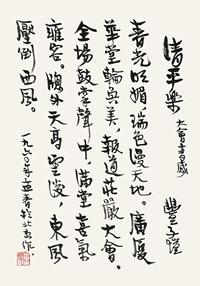 清平樂
大會書感
豐子愷
春光明媚，瑞色漫天地。廣廈
華堂輪奐美，報道莊嚴大會。
全場鼓掌聲中，滿堂喜氣
雍容。牕外天高雲淡，東風
壓倒西風。
一九六〇年立春於北京作